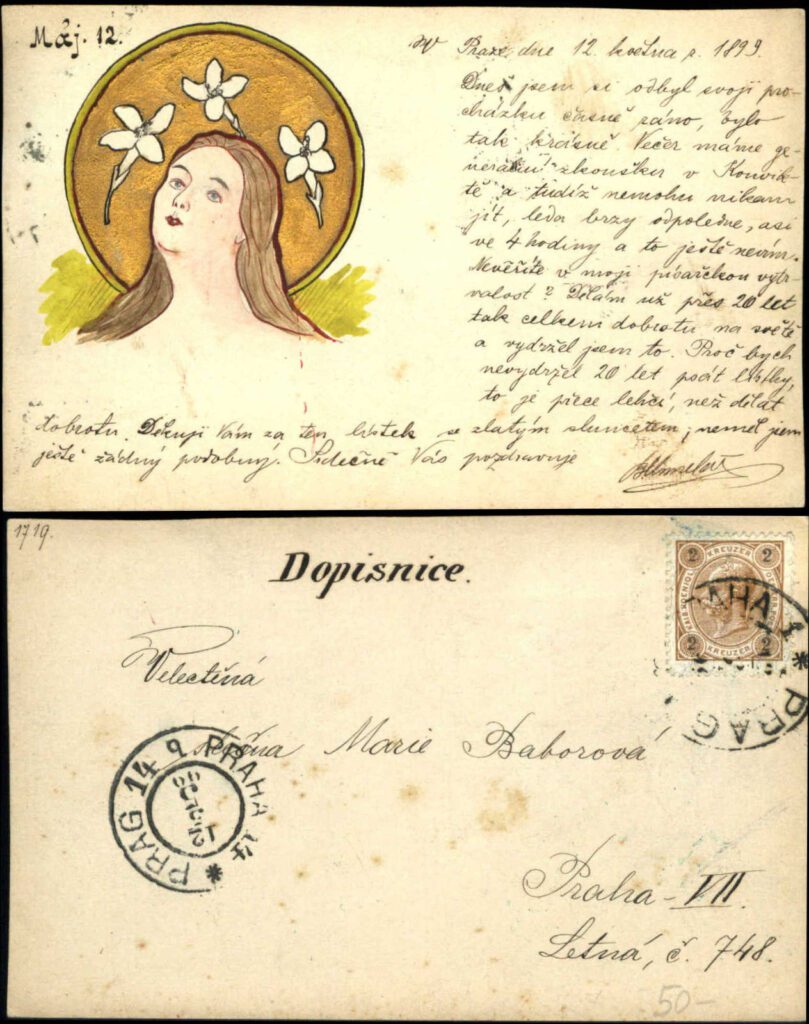 Máj. 12.
V Praze, dne 12. května r. 1899.
Dnes jsem si odbyl svoji pro-
cházku časně ráno, bylo
tak krásně. Večer máme ge-
nerální zkoušku v Konvik-
tě a tudíž nemohu nikam
jít, leda brzy odpoledne, asi
ve 4 hodiny a to ještě nevím.
Nevěříte v moji písařskou vytr-
valost? Dělám už přes 20 let
tak celkem dobrotu na světě
a vydržel jsem to. Proč bych
nevydržel 20 let psát lístky,
to je přece lehčí, než dělat
dobrotu. Děkuji Vám za ten lístek se zlatým sluncem; neměl jsem
ještě žádný podobný. Srdečně Vás pozdravuje
1719.
Dopisnice.
2 KREUZER 2
2 KREUZER 2
PRAHA 1 * PRAG
Velectěná
slečna Marie Baborová
PRAG 14 PRAHA 14 *
Praha - VII.
Letná, č. 748.
50-